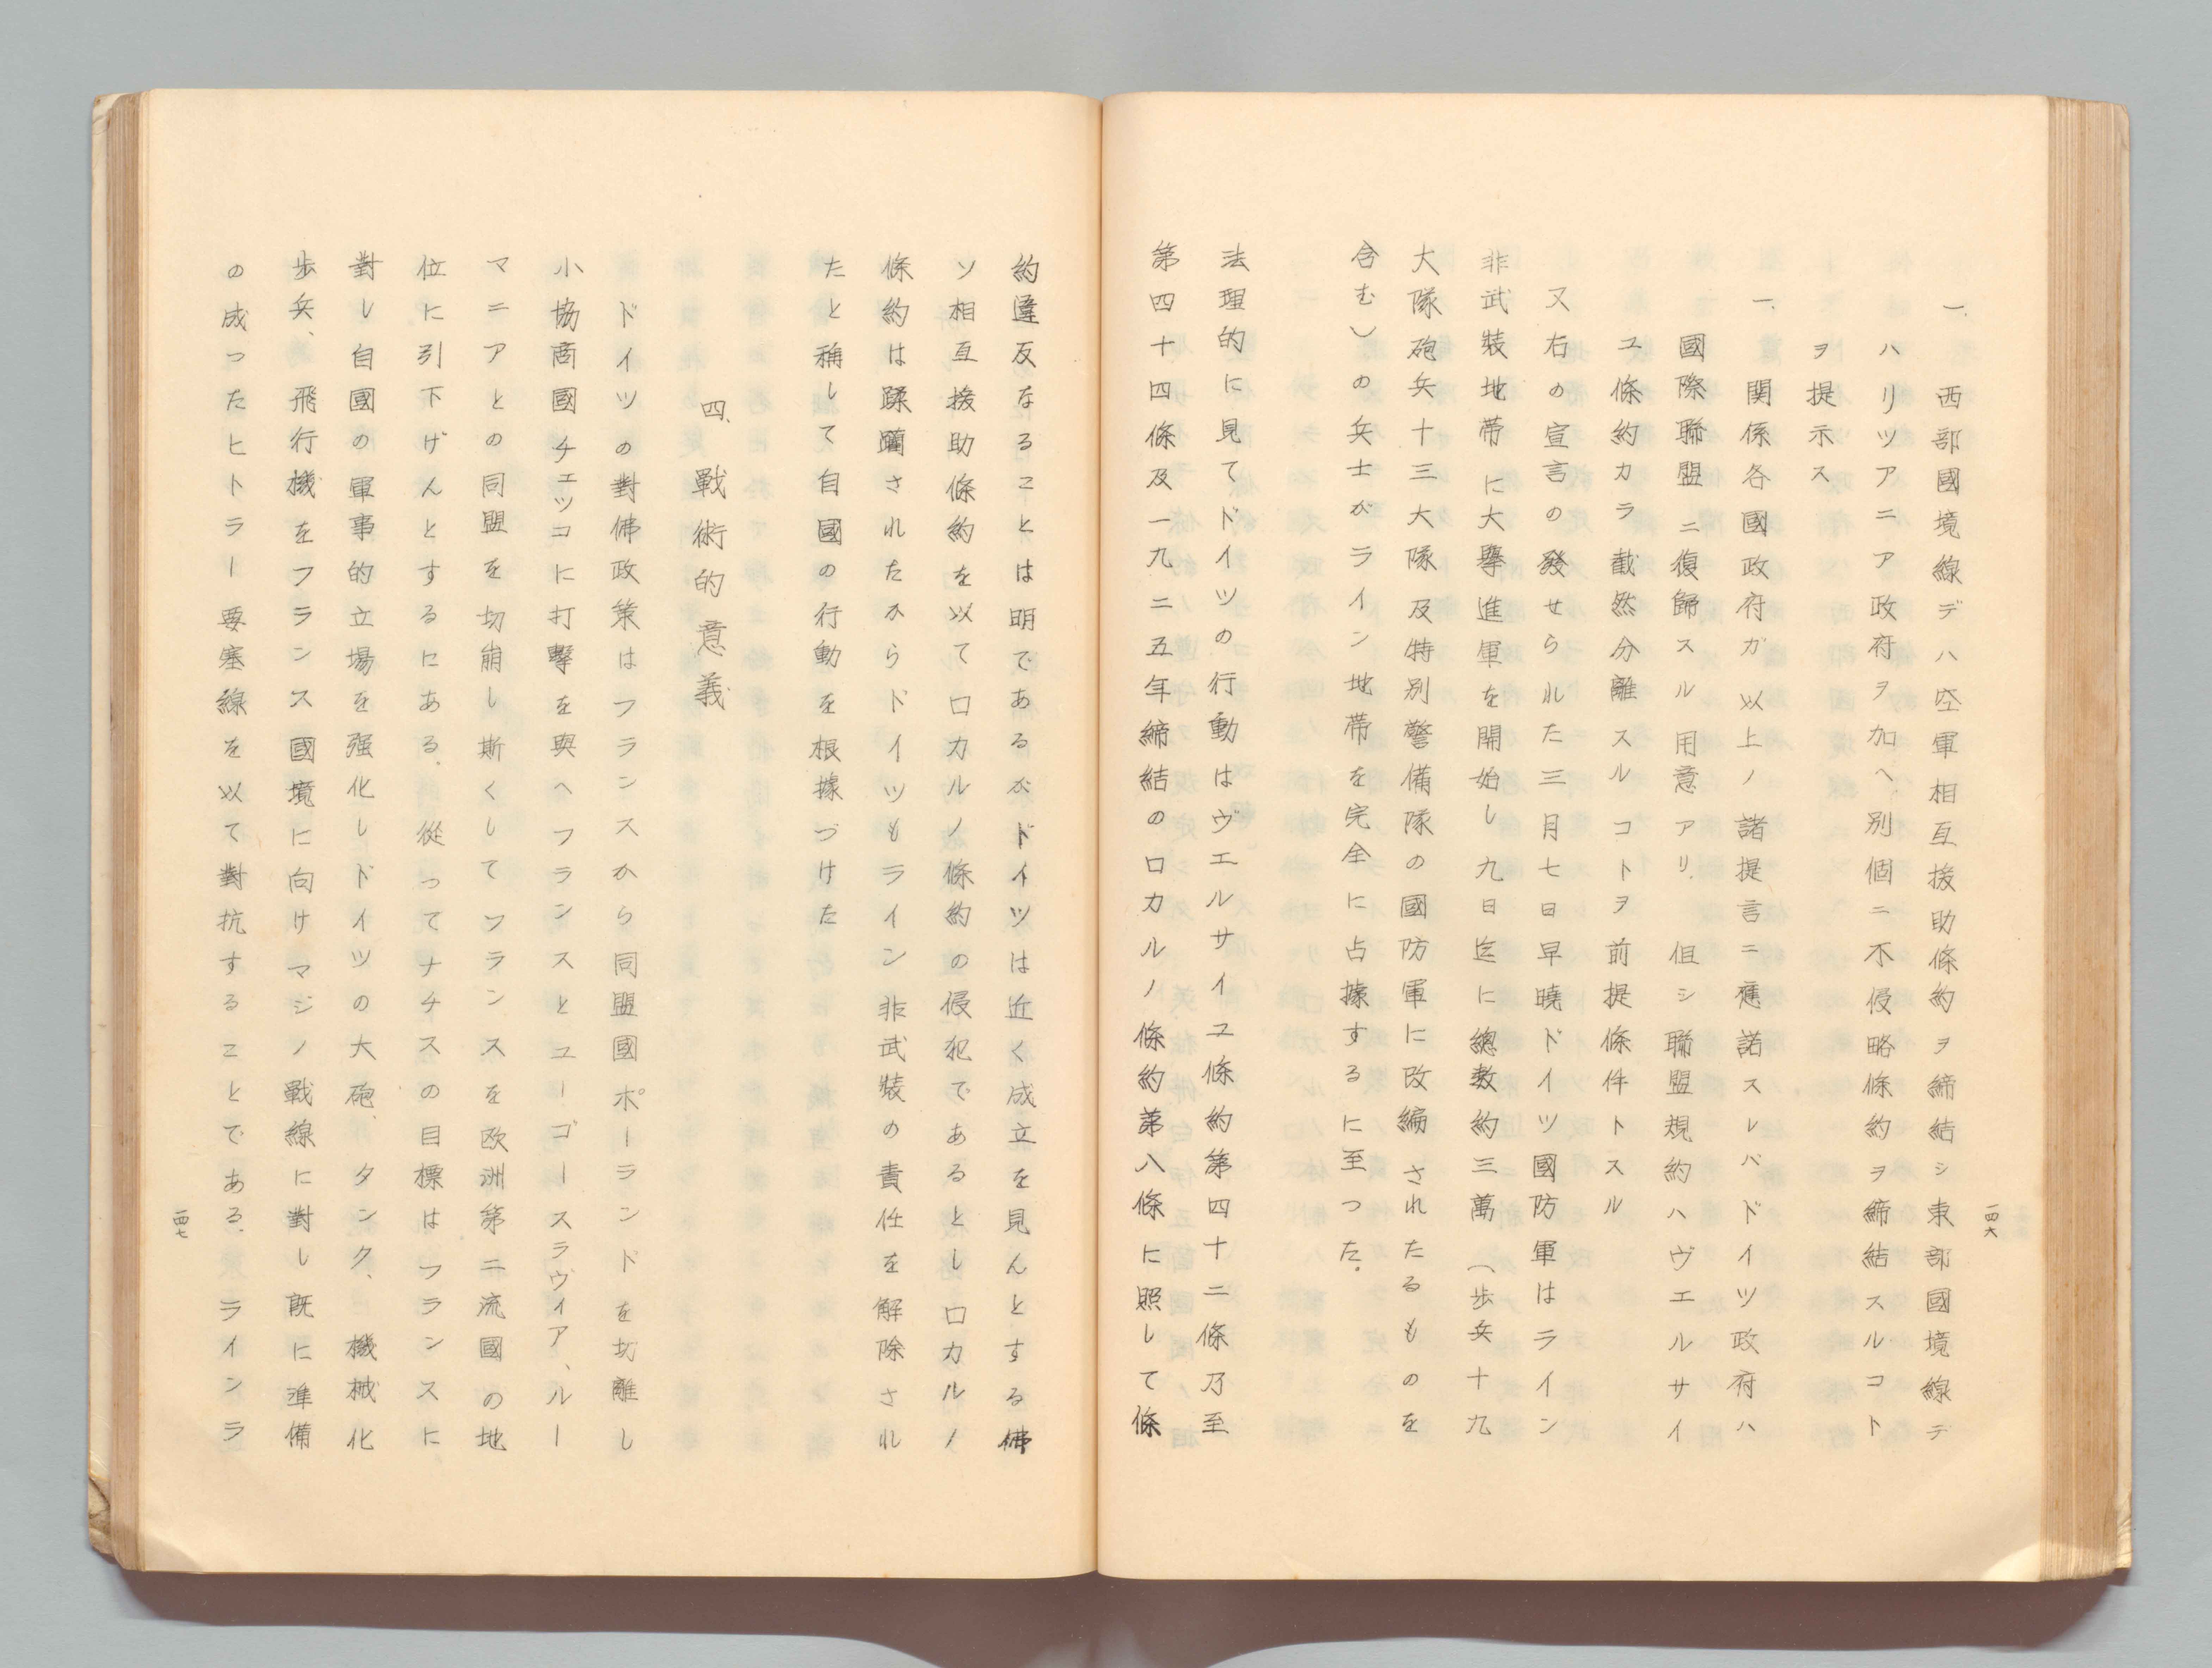 一四六
一、西部國境線デハ空軍相互援助條約ヲ締結シ東部國境線デ
ハリツアニア政府ヲ加ヘ別個ニ不侵略條約ヲ締結スルコト
ヲ提示ス
一、関係各國政府ガ以上ノ諸提言ニ應諾スレバドイツ政府ハ
國際聯盟ニ復歸スル用意アリ、但シ聯盟規約ハヴエルサイ
ユ條約カラ截然分離スルコトヲ前提條件トスル
又右の宣言の發せられた三月七日早曉ドイツ國防軍はライン
非武装地帯に大擧進軍を開始し九日迄に總数約三萬（歩兵十九
大隊砲兵十三大隊及特別警備隊の國防軍に改編されたるものを
含む）の兵士がライン地帯を完全に占據するに至つた。
法理的に見てドイツの行動はヴエルサイユ條約第四十二條乃至
第四十四條及一九二五年締結のロカルノ條約第八條に照して條
約違反なることは明であるがドイツは近く成立を見んとする佛
ソ相互援助條約を以てロカルノ條約の侵犯であるとしロカルノ
條約は蹂躙されたからドイツもライン非武装の責任を解除され
たと稱して自國の行動を根據づけた
四、戰術的意義
ドイツの對佛政策はフランスから同盟國ポーランドを切離し
小協商國チェッコに打擊を與へフランスとユーゴースラヴィア、ルー
マニアとの同盟を切崩し斯くしてフランスを欧洲第二流國の地
位に引下げんとするにある、從ってナチスの目標はフランスに
對し自國の軍事的立場を强化しドイツの大砲、タンク、機械化
歩兵、飛行機をフランス國境に向けマジノ戰線に對し既に準備
の成ったヒトラー要塞線を以て對抗することである、ラインラ
一四七